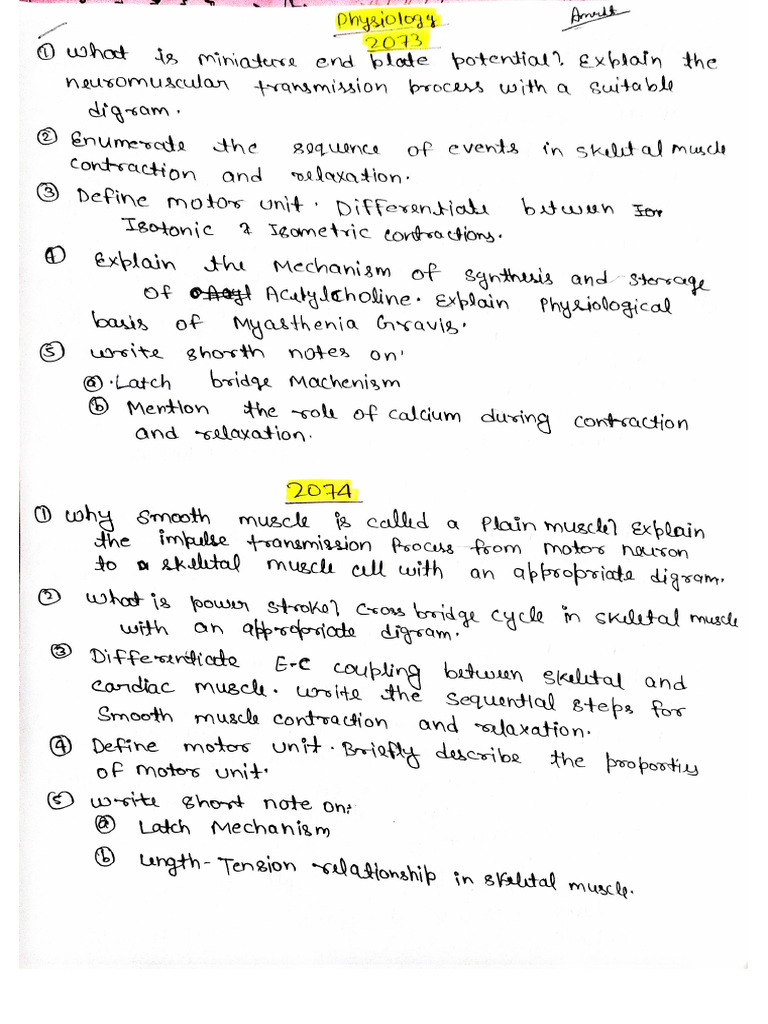 Physiology
2073
① What is miniature end plate potential? Explain the
neuromuscular transmission process with a suitable
digram.
② Enumerate the sequence of events in skeletal muscle
contraction and relaxation.
③ Define motor unit. Differentiate between
Isotonic & Isometric contractions.
④ Explain the Mechanism of synthesis and storage
of Acetylcholine. Explain Physiological
basis of Myasthenia Gravis.
⑤ Write shorth notes on:
ⓐ. Latch bridge Machenism
ⓑ Mention the role of calcium during contraction
and relaxation.
2074
① Why smooth muscle is called a plain muscle? Explain
the impulse transmission Process from motor neuron
to a skeletal muscle cell with an appropriate digram.
② What is power stroke? Cross bridge cycle in skeletal muscle
with an appropriate digram.
③ Differenticate E-C coupling between skeletal and
cardiac muscle. Write the sequential steps for
Smooth muscle contraction and relaxation.
④ Define motor unit. Briefly describe the properties
of motor unit.
⑤ Write short note on:
ⓐ Latch Mechanism
ⓑ Length-Tension relationship in skeletal muscle.